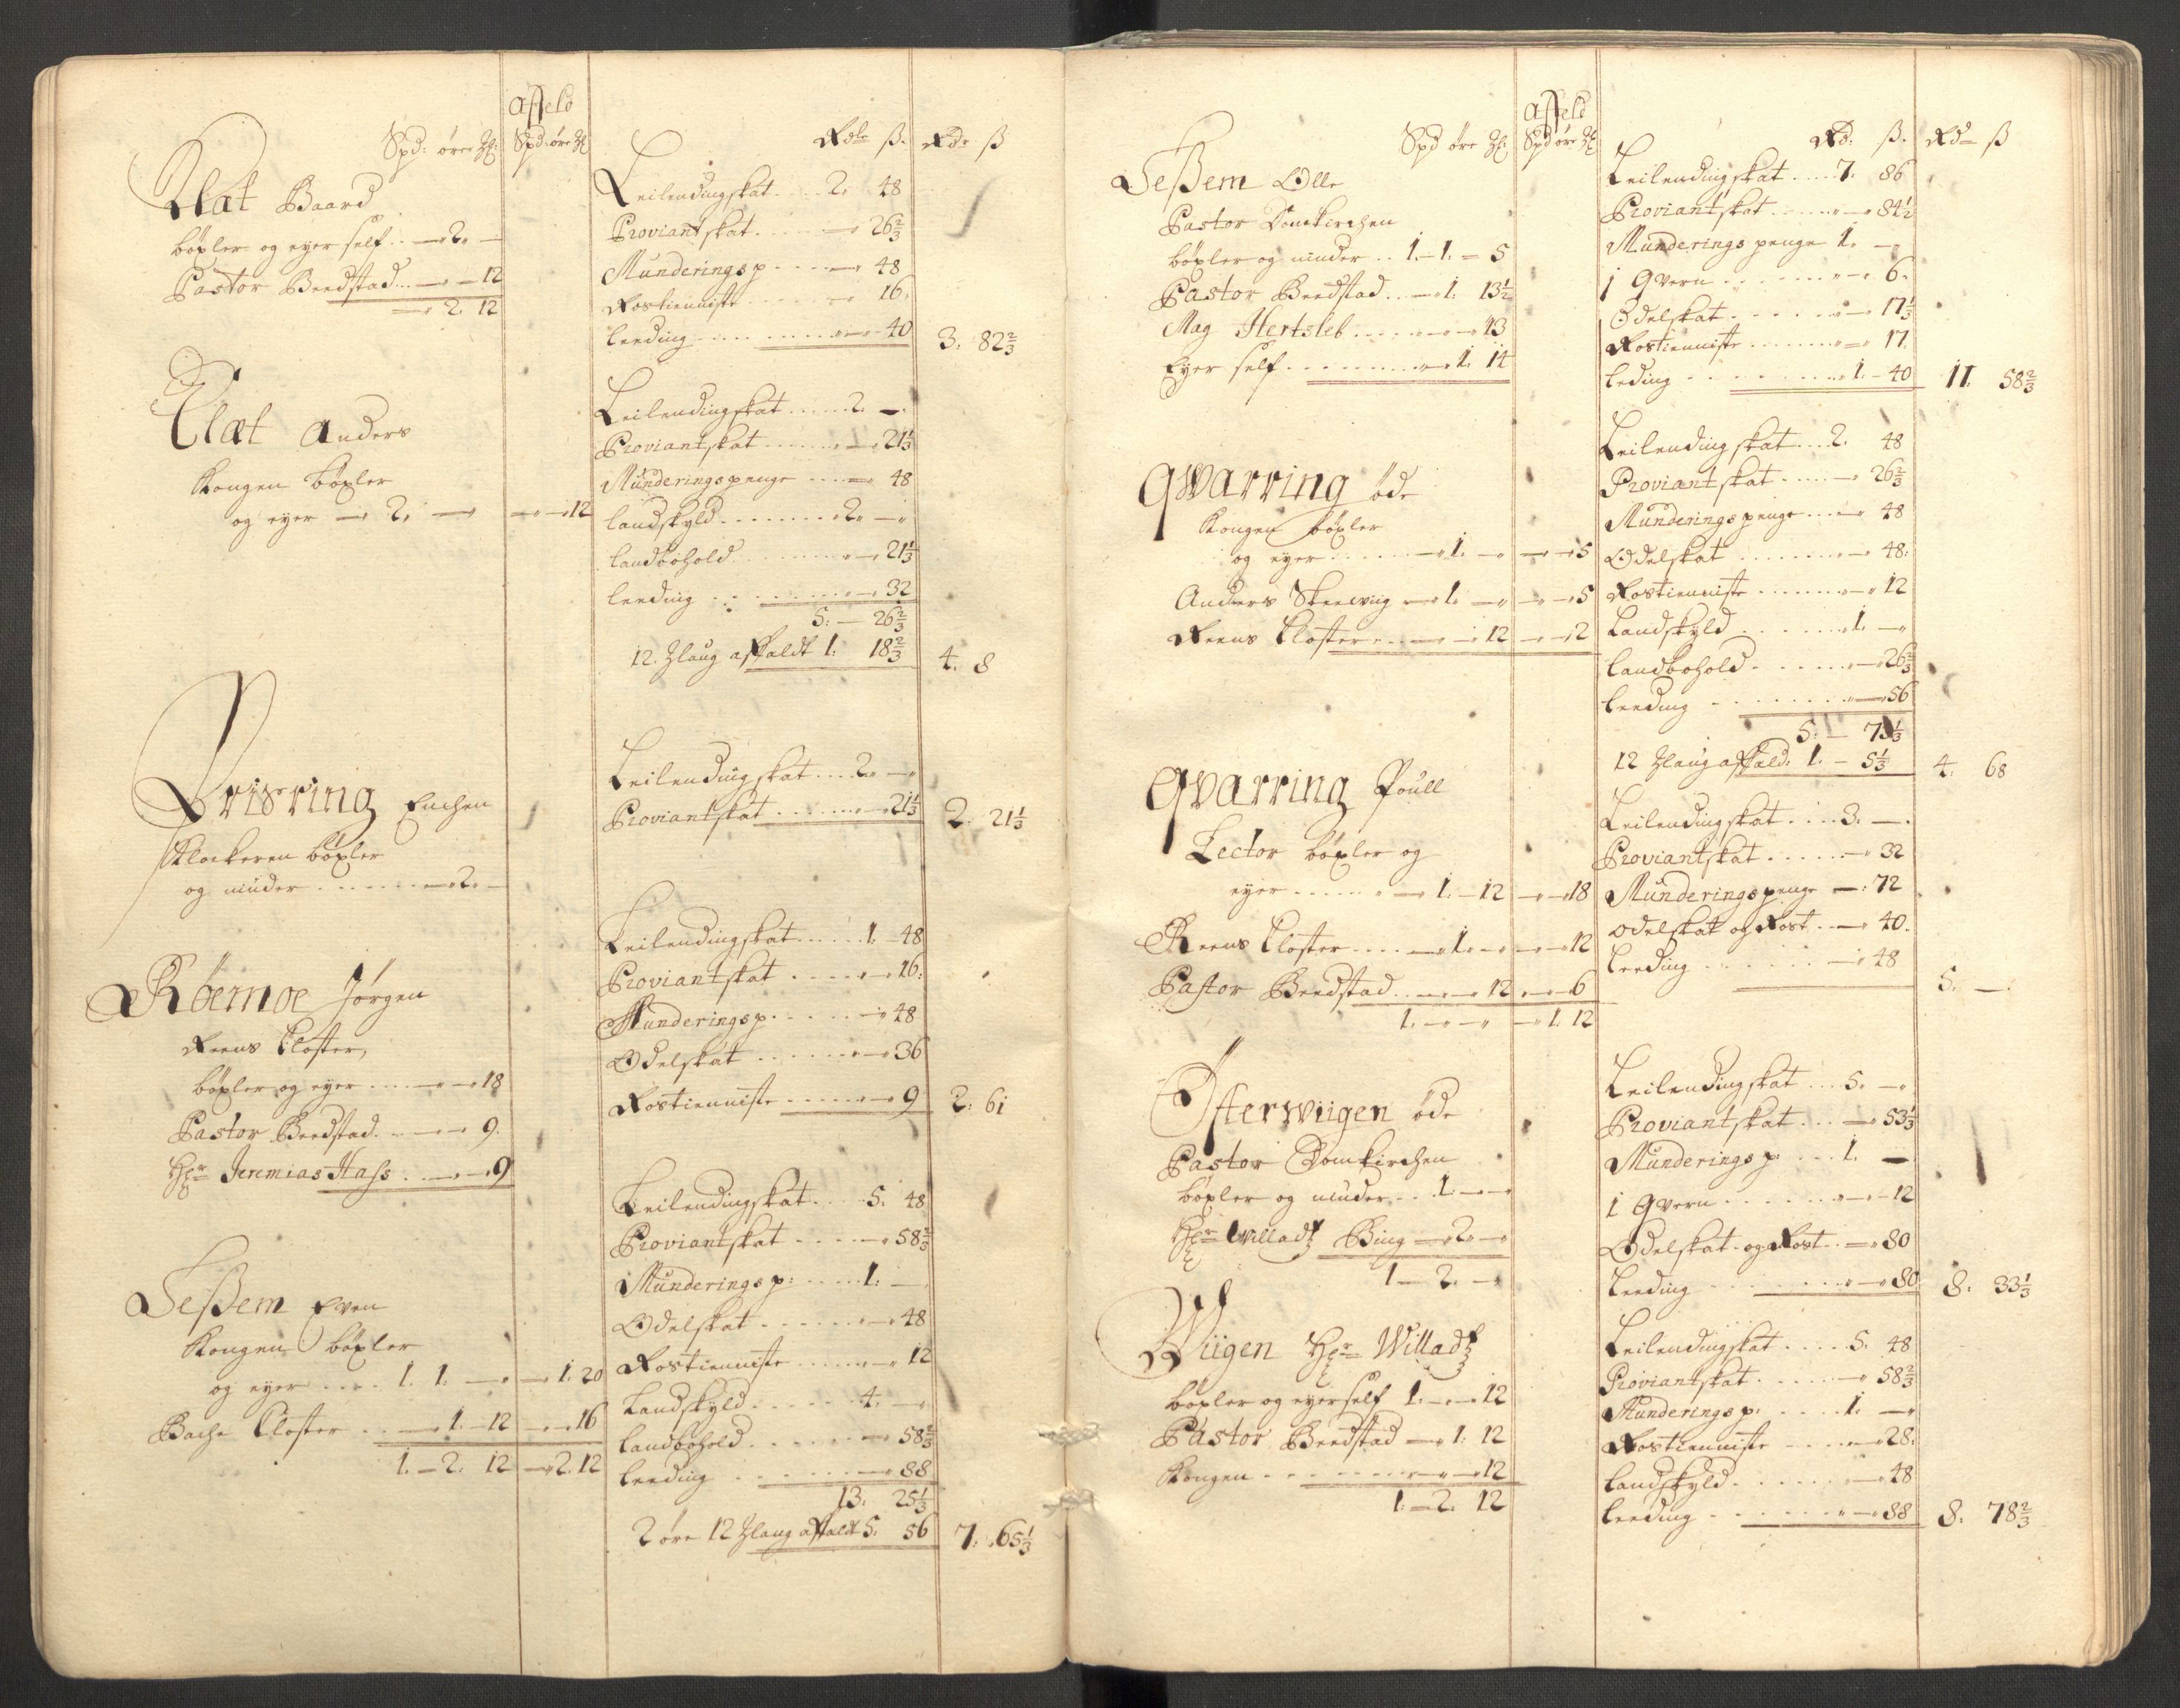 Affeld
Spd: öre Spd: öre Rdlr ß. Rdr ß
Klæt Baard
böxler og eyer self . . — 2. —
Pastor Beedstad . . — — 12
— 2. 12
Leilendingskat . . . . 2. 48
Proviantskat . . . . — 26 2/3
Munderingsp . . . . — 48
Rostienniste . . . . — 16.
leeding . . . . . — 40
3. 82 2/3
Klæt Anders
Kongen böxler
og eyer — 2. — — — 12
Leilendingskat . . . . . 2. —.
Proviantskat . . . . . . — 21 1/3
Munderingspenge . . . — 48
landskyld . . . . . . . . 2. —
landbohold . . . . . . . — 21 1/3
leeding . . . . . . . . — 32
5. — 26 2/3
12. laug affaldt 1. 18 2/3
4. 8
Qrisring Enchen
Klockeren böxler
og minder . . . . . . — 2. —
Leilendingskat . . . 2. —
Proviantskat . . . . . — 21 1/3
2. 21 1/3
Röemoe Jörgen
Reens Closter,
böxler og eyer . . . — — 18
Pastor Beedstad . . — — 9.
Hr Jeremias Hass . . — — 9
Leilendingskat . . . . . 1. 48
Proviantskat . . . . — 16:
Munderingsp . . . . . — 48
Odelskat . . . . . . — 36
Rostienniste . . . . . — 9
2. 61
Seßem Even
Kongen böxler
og eyer . . . . 1. 1. — — 1. 20
Bache Closter . . — 1. 12 — — 16
1. — 2. 12 — 2. 12
Leilendingskat . . . . 5. 48
Proviantskat . . . . — 58 2/3
Munderingsp: . . . . . 1. —
Odelskat . . . . . . — 48
Rostienniste . . . . . — 12
Landskyld . . . . . . 4. —
landbohold . . . . . . — 58 2/3
leeding . . . . . . . — 88
13. 25 1/3
2 öre 12 laug affaldt 5. 56
7. 65 1/3
Affeld
Spd öre Spd öre Rd: ß. Rdr ß
Seßem Olle
Pastor Domkirchen
böxler og minder . . 1. — 1. — 5
Pastor Beedstad . . — 1. 13 1/2
Mag Hertsleb . . . . — — 13
Eyer self . . . . . . . — 1. 14
Leilendingskat . . . . 7. 86
Proviantskat . . . . . — 84 1/2
Munderings penge 1. —
1 Qvern . . . . . . — 6.
Odelskat . . . . . . — 17 1/3
Rostienniste . . . . . — 17
leding . . . . . . . . 1. — 40
11. 58 2/3
Qwarring öde
Kongen böxler
og eyer . . . . . — 1. — — — 5
Anders Skeevig — 1. — — — 5
Reens Closter . . — — 12 — — 2
Leilendingskat . . . 2. 48
Proviantskat . . . . — 26 2/3
Munderingspenge . . . — 48
Odelskat . . . . . . — 48.
Rostienniste . . . . . — 12
Landskyld . . . . . . 1. —
landbohold . . . . . . — 26 2/3
leeding . . . . . . . — 56
5. — 73 1/3
12 laug affald: 1. — 5 1/3
4. 68
Qvarring Poull
Lector böxler og
eyer . . . . . — 1. — 12 — — 18
Reens Closter . . . . — 1. — — — 12
Pastor Beedstad . . — — 12 — — 6
1. — — — 1. 12
Leilendingskat . . . . 3. —.
Proviantskat . . . . . — 32
Munderingspenge — : 72
Odelskat og Rost . . — 40.
leeding . . . . . . — 48
5. —.
Österwiigen öde
Pastor Domkirchen
böxler og minder . . 1. — —
Hr Willadtz Bing — 2. —
1 — 2. —
Leilendingskat . . . 5. —
Proviantskat . . . — 53 1/3
Munderingsp: . . . . 1. —
1 Qvern . . . . . . — 12
Odelskat og Rost . . — 80
Leeding . . . . . . . — 80
8. 33 1/3
Wiigen Hr Willadtz
böxler og eyer self 1. — — 12
Pastor Beedstad — 1. 12
Kongen . . . . . . . . — — 12
1. — 2. 12
Leilendingskat . . . . . 5. 48
Proviantskat . . . . . — 58 2/3
Munderingsp: . . . . . 1. —
Rostienniste . . . . . — 28.
landskyld . . . . . . . — 48
leeding . . . . . . . . — 88
8. 78 2/3